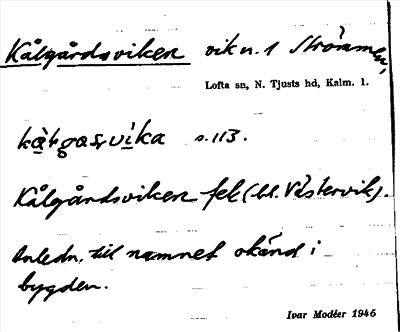 Kålgårdsviken vik n. 1 Strömmen,
Lofta sn, N. Tjusts hd, Kalm. l.
s. 113.
Kålgårdsviken fek (bl. Västervik).
Anledn. till namnet okänd i
bygden.
Ivar Modéer 1946